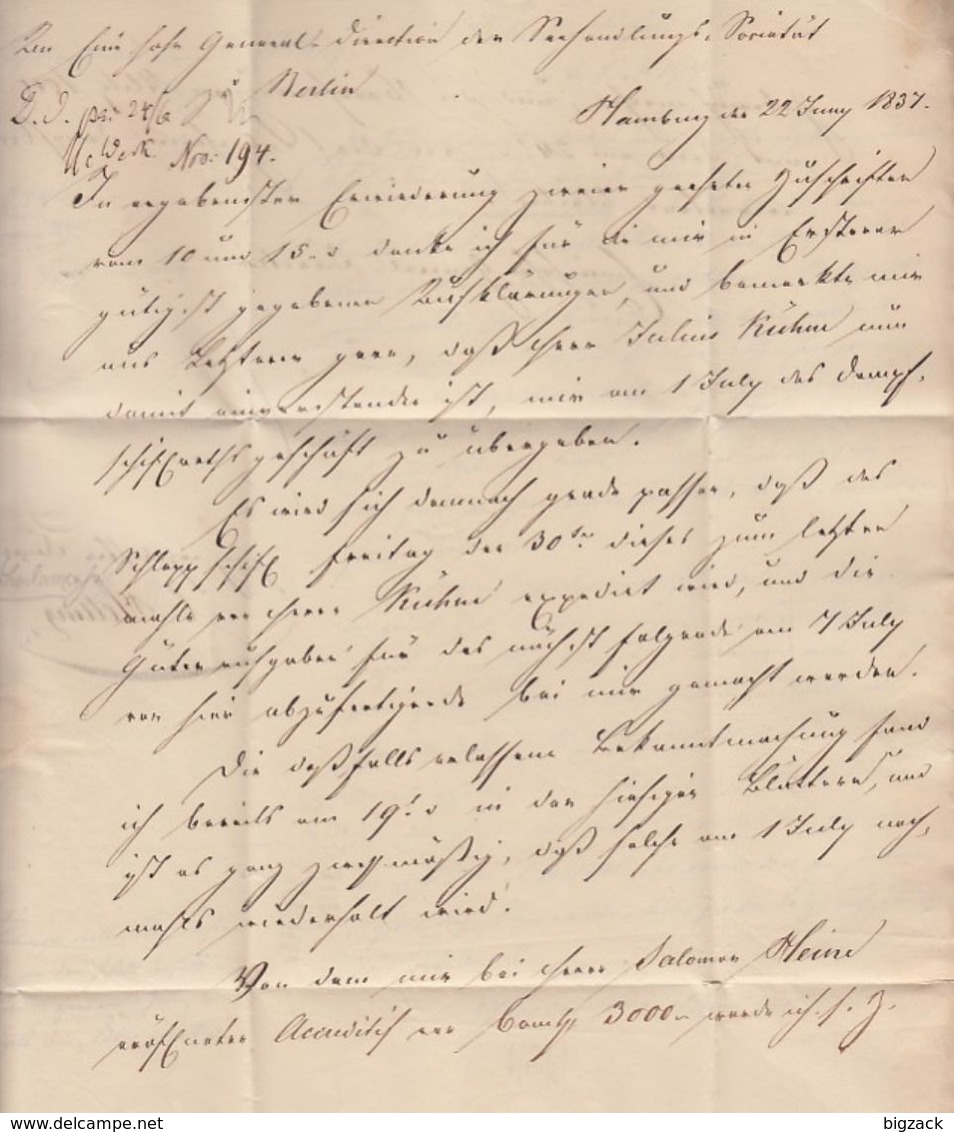 An Eine hohe General-Direction der Seehandlungs-Societät
Berlin
Hamburg den 22 Juny 1837.
24/6
Nro. 194.
In ergebenster Erwiederung zweier geehrter Zuschriften
vom 10 und 15. d danke ich für die mir in Ersterer
gütigst gegebenen Aufklärungen, und bemerkte mir
aus Letzterer gern, daß Herr Julius Kühne nun
damit einverstanden ist, mir am 1 July das Dampf-
schiffarthsgeschäft zu übergeben.
Es wird sich demnach grade passen, daß das
Schleppschiff Freitag den 30ten dieses zum letzten
mahle von Herrn Kühne expedirt wird, und die
Güteraufgaben für das nächst folgende am 7 July
von hier abzufertigende bei mir gemacht werden.
Die deßfalls erlassene Bekanntmachung fand
ich bereits am 19t. d in den hiesigen Blättern, und
ist es ganz zweckmäßig, daß solche am 1 July noch-
mahls wiederholt wird.
Von dem mir bei Herrn Salomon Heine
eröffneten Accreditif von 3000 werde ich s. Z.
delcampe.net
bigzack